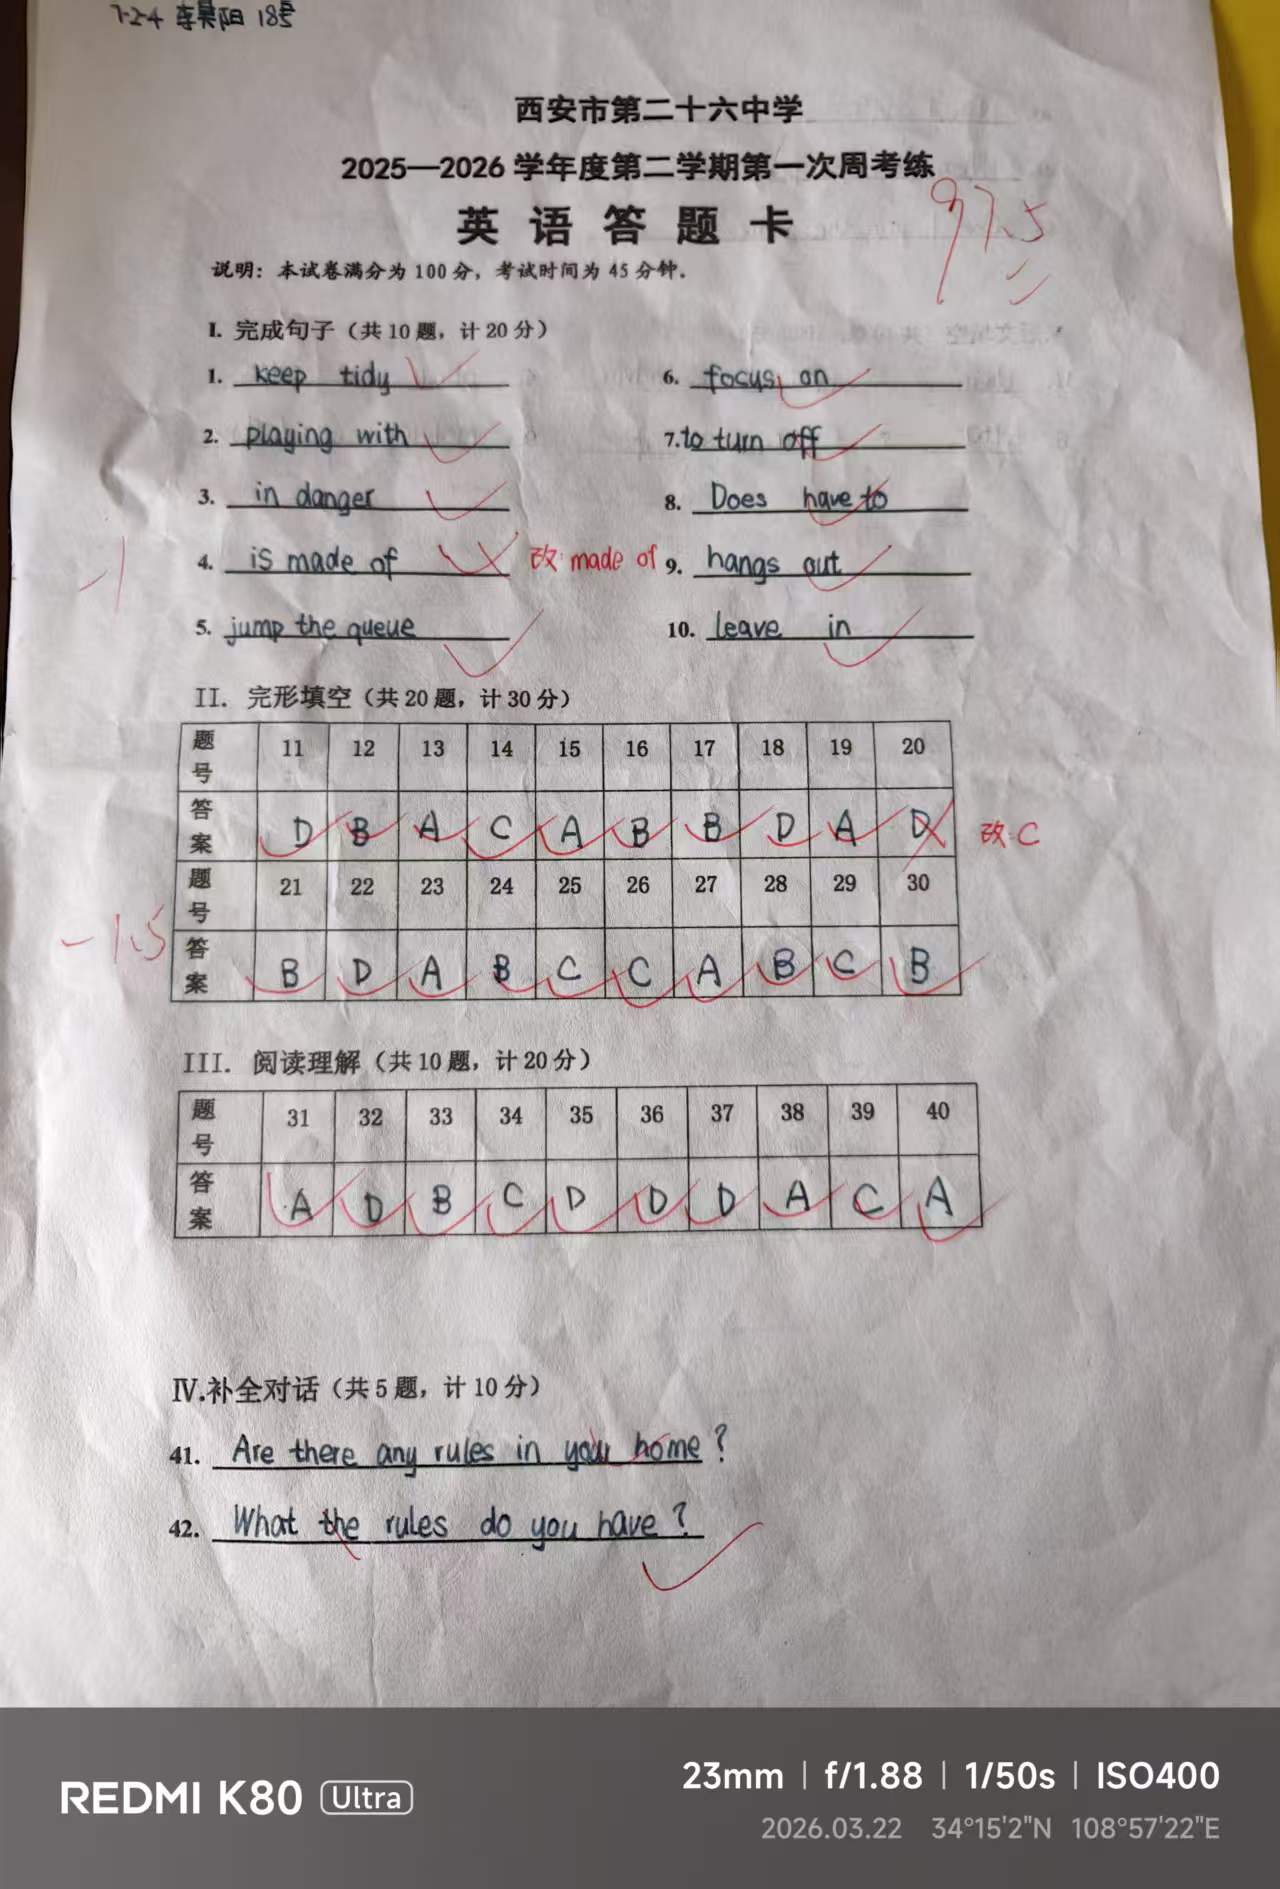 7-2-4 李昊阳 18号
西安市第二十六中学
2025—2026 学年度第二学期第一次周考练
英 语 答 题 卡
97.5
说明：本试卷满分为 100 分，考试时间为 45 分钟。
I. 完成句子（共 10 题，计 20 分）
1. keep tidy 6. focus on
2. playing with 7. to turn off
3. in danger 8. Does have to
-1 4. is made of 改: made of 9. hangs out
5. jump the queue 10. leave in
II. 完形填空（共 20 题，计 30 分）
题号 11 12 13 14 15 16 17 18 19 20
答案 D B A C A B B D A D 改: C
题号 21 22 23 24 25 26 27 28 29 30
-1.5 答案 B D A B C C A B C B
III. 阅读理解（共 10 题，计 20 分）
题号 31 32 33 34 35 36 37 38 39 40
答案 A D B C D D D A C A
IV.补全对话（共 5 题，计 10 分）
41. Are there any rules in your home?
42. What the rules do you have?
REDMI K80 Ultra 23mm | f/1.88 | 1/50s | ISO400
2026.03.22 34°15'2"N 108°57'22"E